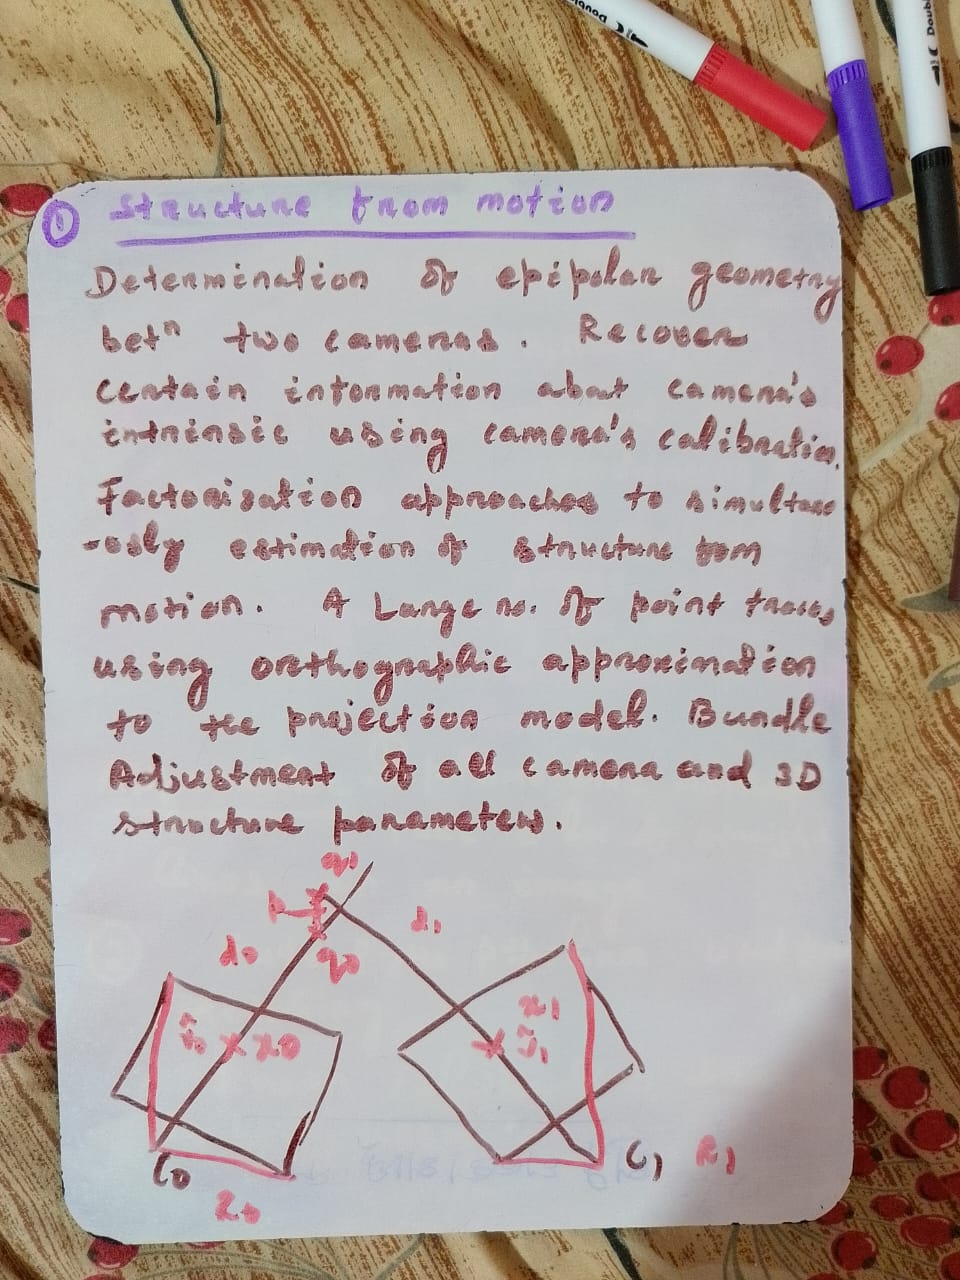 ① Structure from motion
Determination of epipolar geometry
betⁿ two cameras. Recover
certain information about camera's
intrinsic using camera's calibration.
Factorisation approaches to simultane
-ously estimation of structure from
motion. A Large no. of point tracks
using orthographic approximation
to the projection model. Bundle
Adjustment of all camera and 3D
structure parameters.
q1
p d1
d0 q0
x1
v̂0 x0 v̂1
C0 C1 R1
R0
Doub